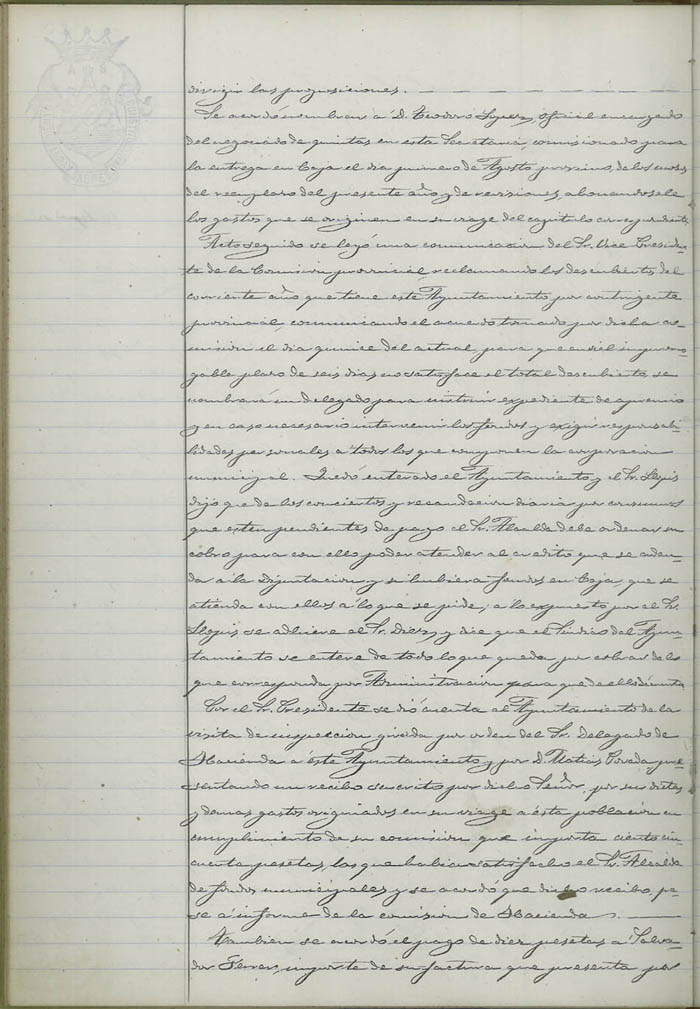 dirigir las proposiciones.
Se acordó nombrar á D. Teodoro oficial encargado
del negociado de quintas en esta Secretaria, comisionado para
la entrega en Caja el dia primero de Agosto proximo, de los mozos
del reemplazo del presente año y de revisiones, abonandosele
los gastos que se originen en su viage del capitulo correspondiente
Acto seguido se leyó una comunicacion del Sr. Vice Presiden-
te de la Comision provincial, reclamando los descubiertos del
corriente año que tiene este Ayuntamiento por contingente
provincial, comunicando el acuerdo tomado por dicha co-
mision el dia quince del actual, para que en el improrro-
gable plazo de seis dias no satisface el total descubierto se
nombrará un delegado para instruir expediente de apremio
y en caso necesario intervenir los fondos y exigir responsabi-
lidades personales a todos los que componen la corporacion
municipal. Quedó enterado el Ayuntamiento y el Sr. Llopis
dijo que de los conciertos y recaudacion diaria por consumos
que esten pendientes de pago el Sr. Alcalde debe ordenar su
cobro para con ello poder atender al credito que se adeu-
da á la Diputacion y si hubiera fondos en Caja, que se
atienda con ellos á lo que se pide; a lo expuesto por el Sr.
Llopis se adhiere el Sr. Diez, y dice que el Sindico del Ayun-
tamiento se entere de todo lo que queda por cobrar de lo
que corresponda por Administracion para que de ello dé cuenta
Por el Sr. Presidente se dió cuenta al Ayuntamiento de la
visita de inspeccion girada por orden del Sr. Delegado de
Hacienda á éste Ayuntamiento y por D. Matias Poveda, pre-
sentando un recibo suscrito por dicho Señor, por sus dietas
y demas gastos originados en su viage a ésta poblacion en
cumplimiento de su comision que importa ciento cin-
cuenta pesetas, las que habia satisfecho el Sr. Alcalde
de fondos municipales, y se acordó que dicho recibo, pa-
se á informe de la comision de Hacienda.
Tambien se acordó el pago de diez pesetas a Salva-
dor Ferrer, importe de su factura que presenta por